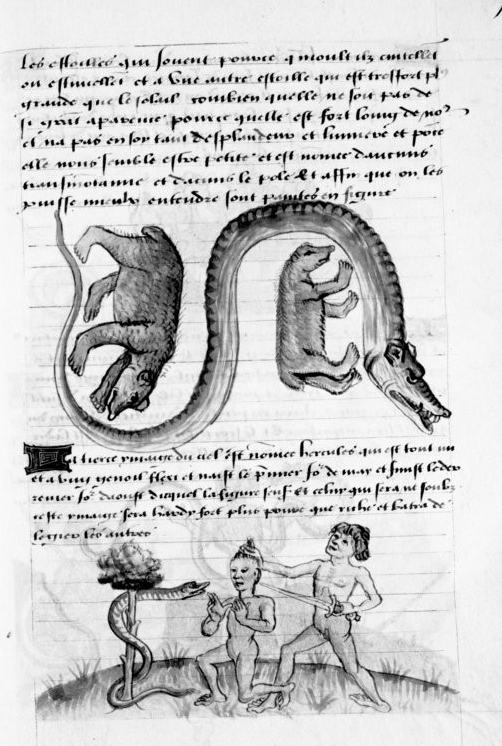 Les estoilles qui souvent pource q moult ilz
ou estincellet et a Une autre estoille qui est tresfort pl9
grande que le soleil combien quelle ne soit pas de
si grãt aparence pource quelle est fort loing de no9
et na pas en soy tant desplandeur et lumiere et pour
elle nous semble estre petite et est nomee daucuns
transmotanne et dacuns le pole Et affin que on les
puisse mieulx entendre sont paintes en figure
La tierce ymaige du ciel est nomee hercules qui est tout nu
et a Ung genoil flexi et naist le pmier Jo9 de may et finist le der
renier Jo9 daoust duquel la figure senf et celuy qui sera ne soubz
ceste ymaige sera hardy fort plus povre que riche et batra de
legier les autres